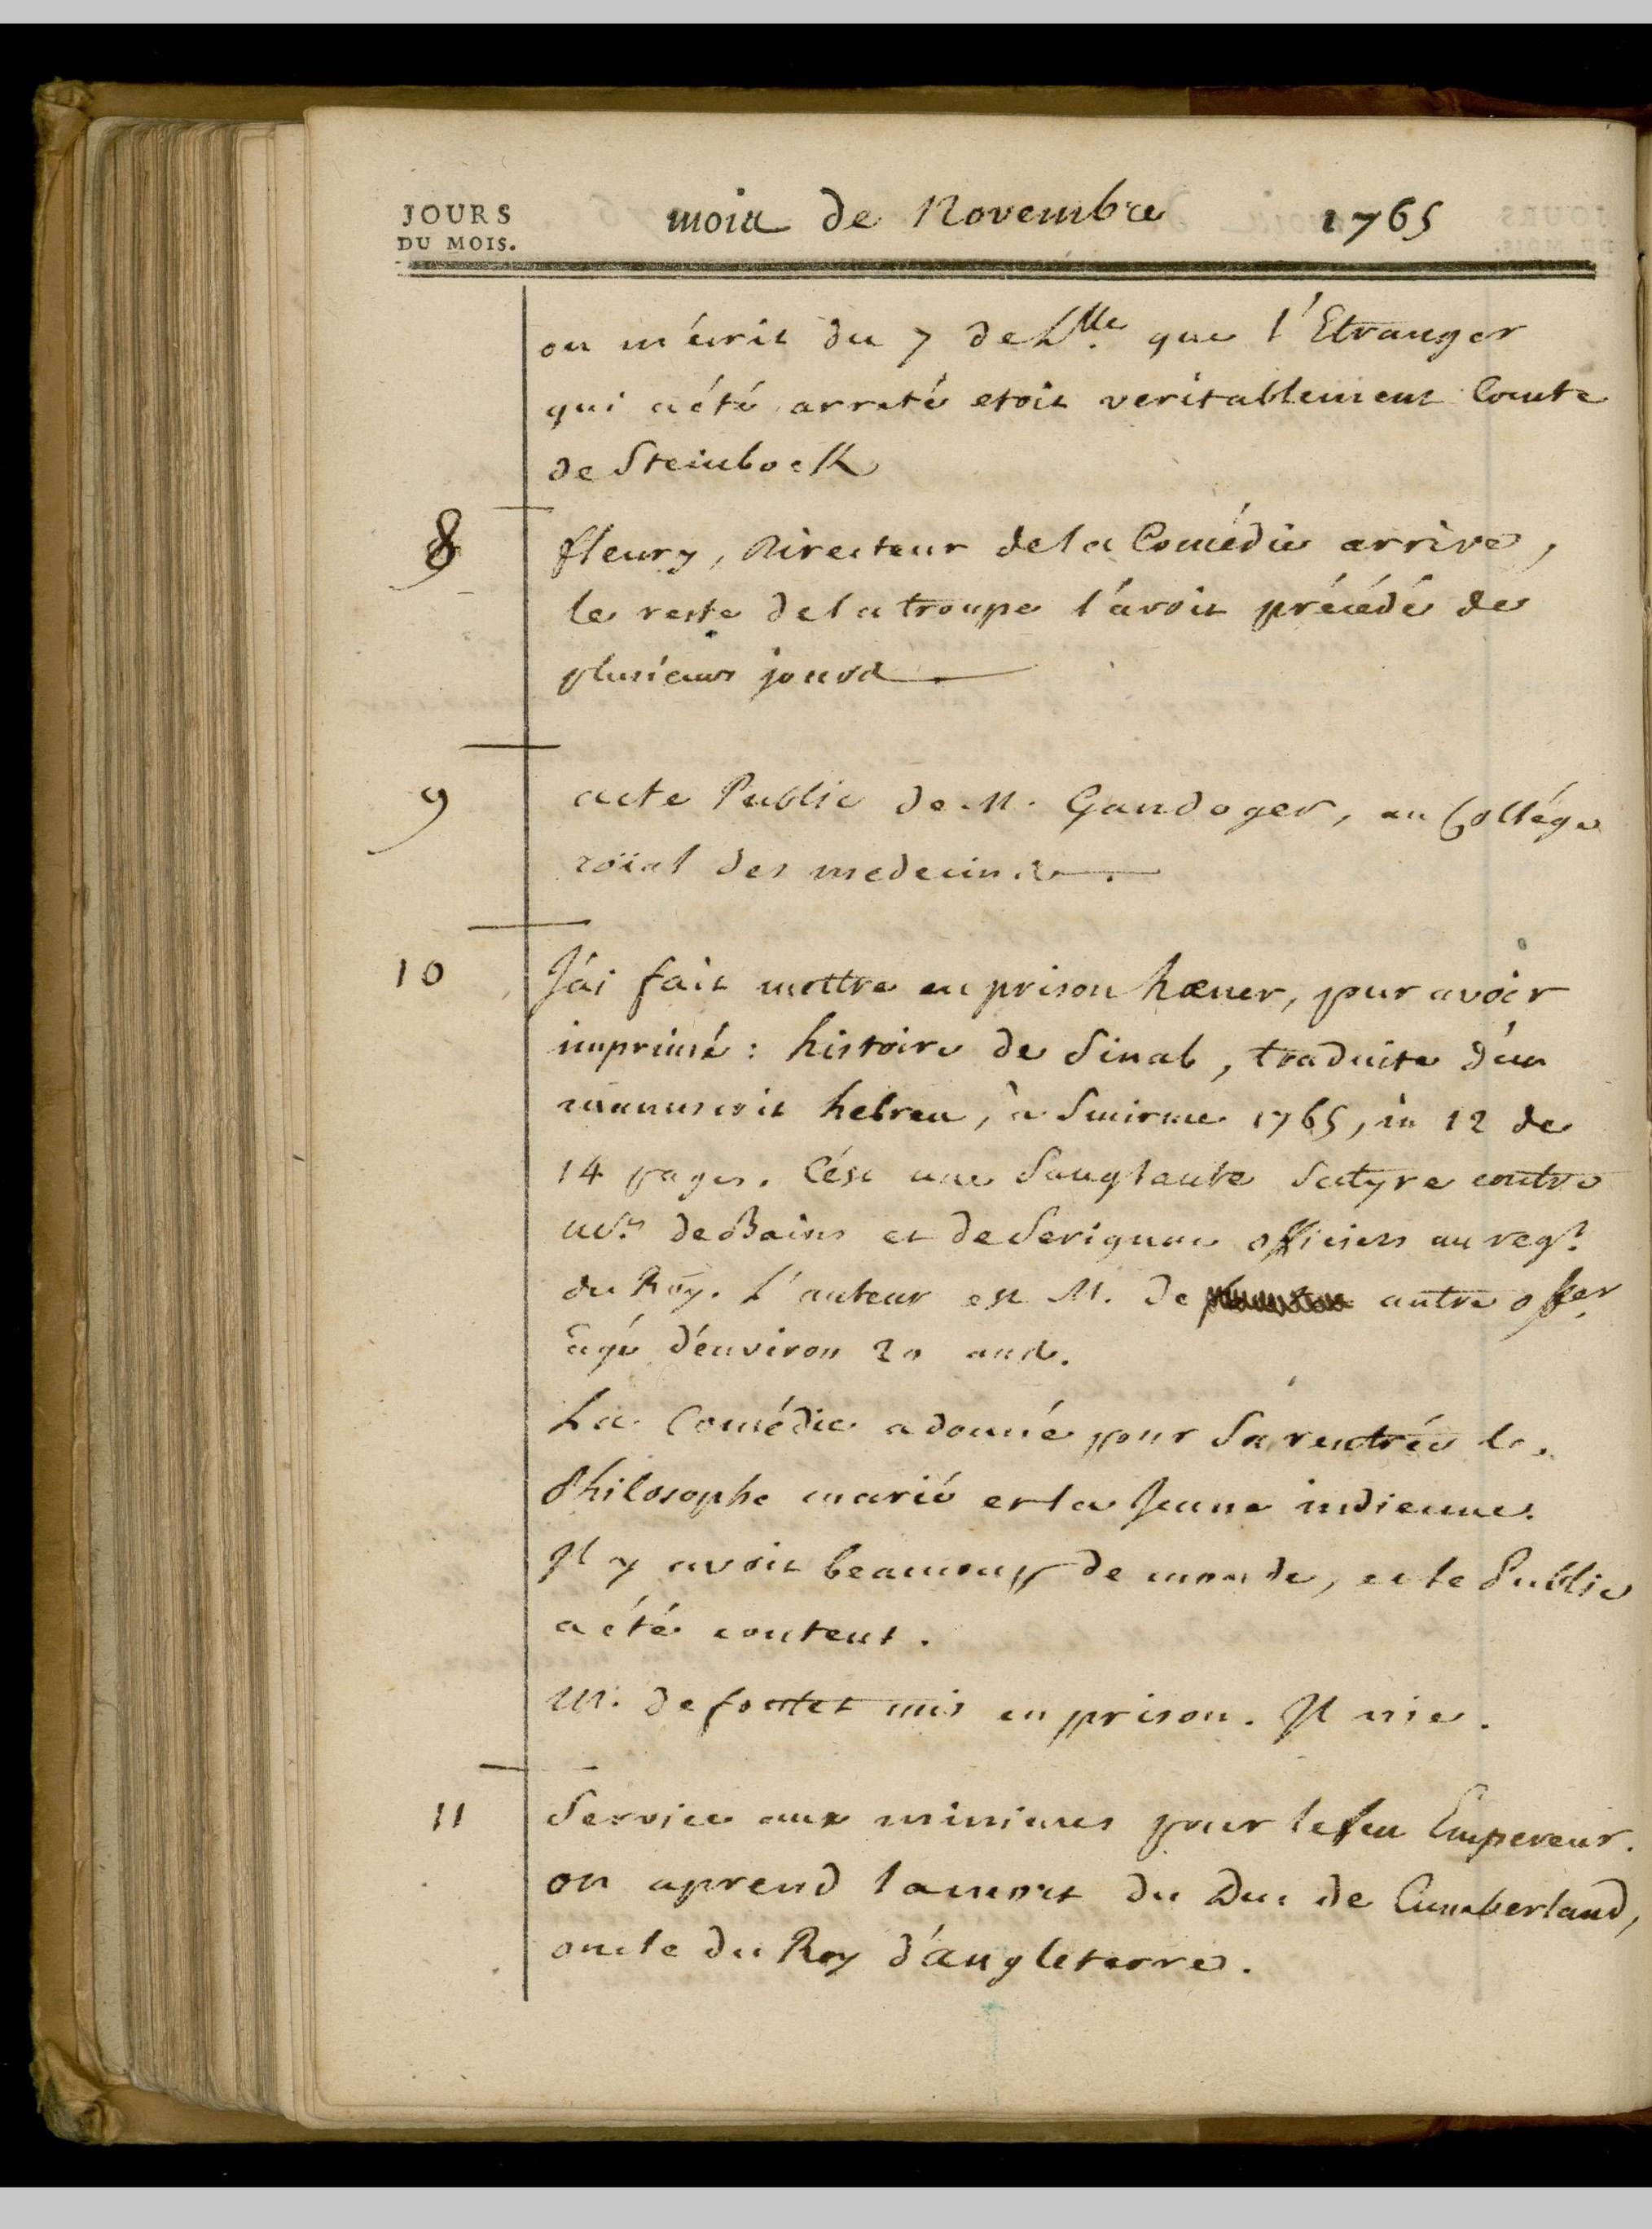 JOURS
DU MOIS.
mois de Novembre 1765
on m'écrit du 7 de L.lle que l'Etranger
qui a été arreté etoit veritablement Comte
de Steinbock
8
fleury, Directeur de la Comédie arrive,
le reste de la troupe l'avoit précédé de
plusieurs jours
9
acte Public de M. Gandoger, au Collége
roïal des medecins.
10
J'ai fait mettre en prison hæner, pour avoir
imprimé : histoire de Sinab, traduite d'un
manuscrit hebreu, à Smirne 1765, in 12 de
14 pages. C'est une Sanglante Satyre contre
Mrs. de Bains et de Serignac officiers au regt.
du Roy. L'auteur est M. de autre offer.
âgé d'environ 20 ans.
La Comédie a donné pour Sa rentrée le
Philosophe marié et la Jeune indienne.
Il y avoit beaucoup de monde, et le Public
a été content.
M. de fontet mis en prison. Il nie.
11
Service aux minimes pour le feu Empereur.
on aprend la mort du Duc de Cumberland,
oncle du Roy d'angleterre.